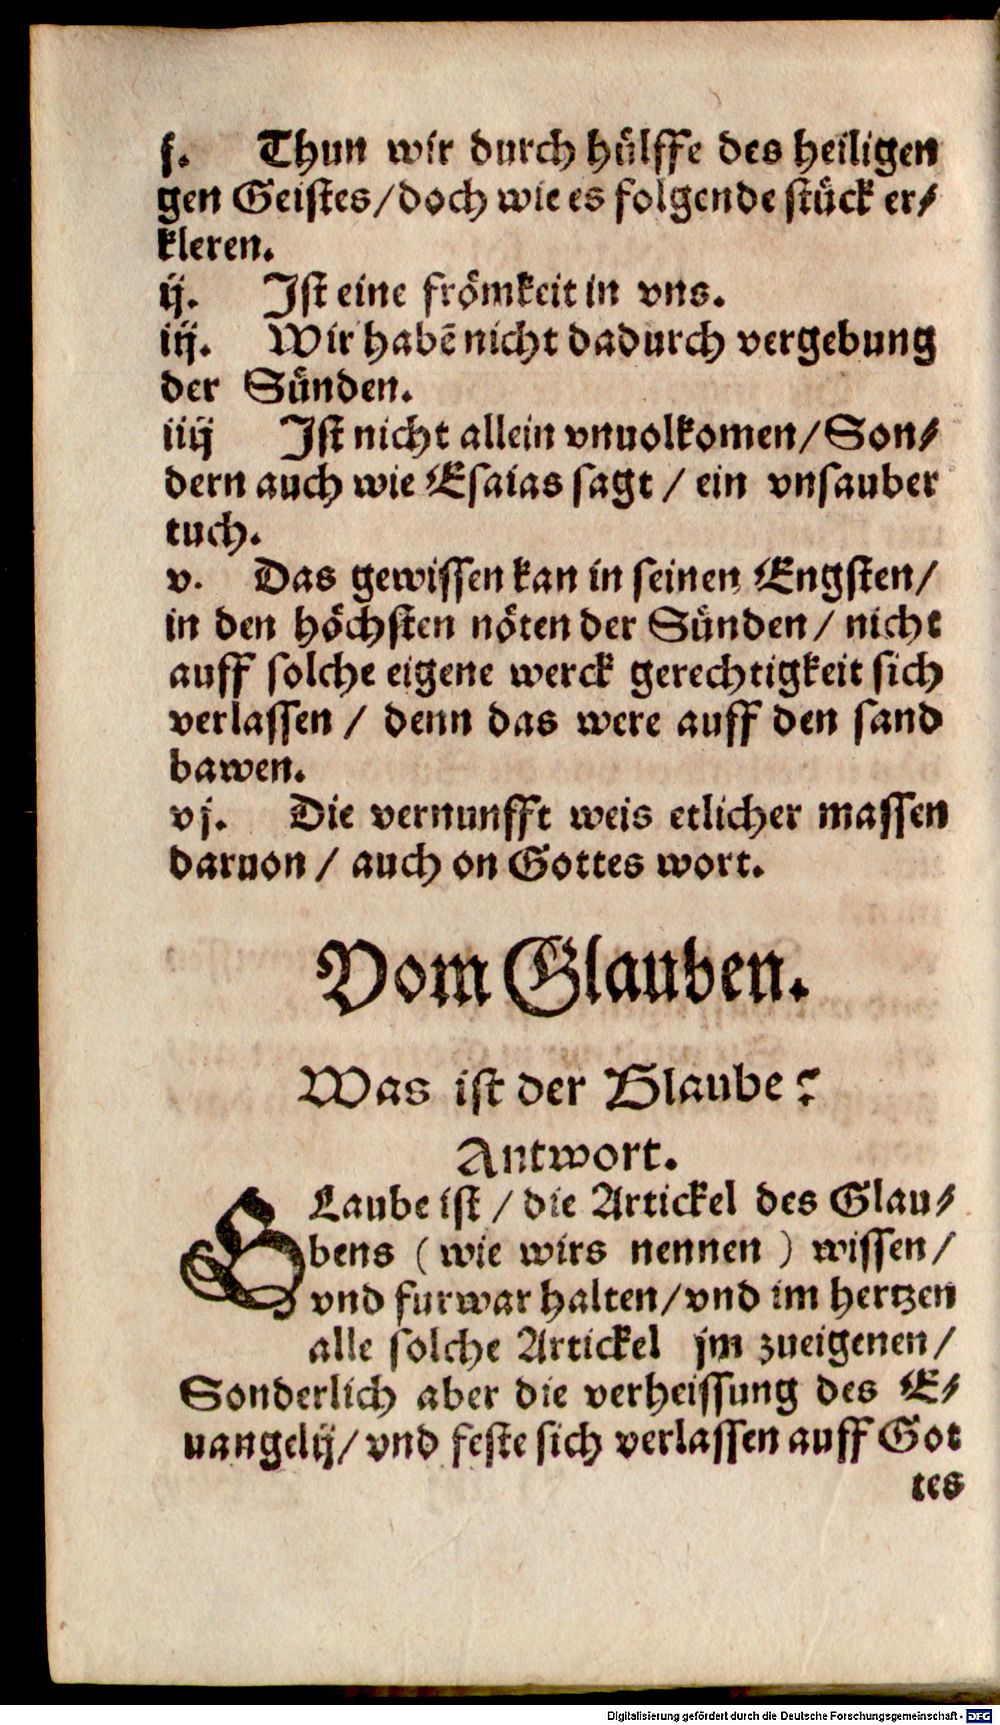 ſ. Thun wir durch hůlffe des heiligen
gen Geiſtes/ doch wie es folgende ſtůck er⸗
kleren.
ij. Iſt eine frőmkeit in vns.
iij. Wir habẽ nicht dadurch vergebung
der Sůnden.
iiij Iſt nicht allein vnuolkomen/ Son⸗
dern auch wie Eſaias ſagt / ein vnſauber
tuch.
v. Das gewiſſen kan in ſeinen Engſten/
in den hőchſten nőten der Sůnden / nicht
auff ſolche eigene werck gerechtigkeit ſich
verlaſſen / denn das were auff den ſand
bawen.
vj. Die vernunfft weis etlicher maſſen
daruon / auch on Gottes wort.
Vom Glauben.
Was iſt der Glaube?
Antwort.
GLaube iſt / die Artickel des Glau⸗
bens ( wie wirs nennen ) wiſſen/
vnd furwar halten/ vnd im hertzen
alle ſolche Artickel jm zueigenen/
Sonderlich aber die verheiſſung des E⸗
uangelij/ vnd feſte ſich verlaſſen auff Got
tes
Digitalisierung gefördert durch die Deutsche Forschungsgemeinschaft - DFG